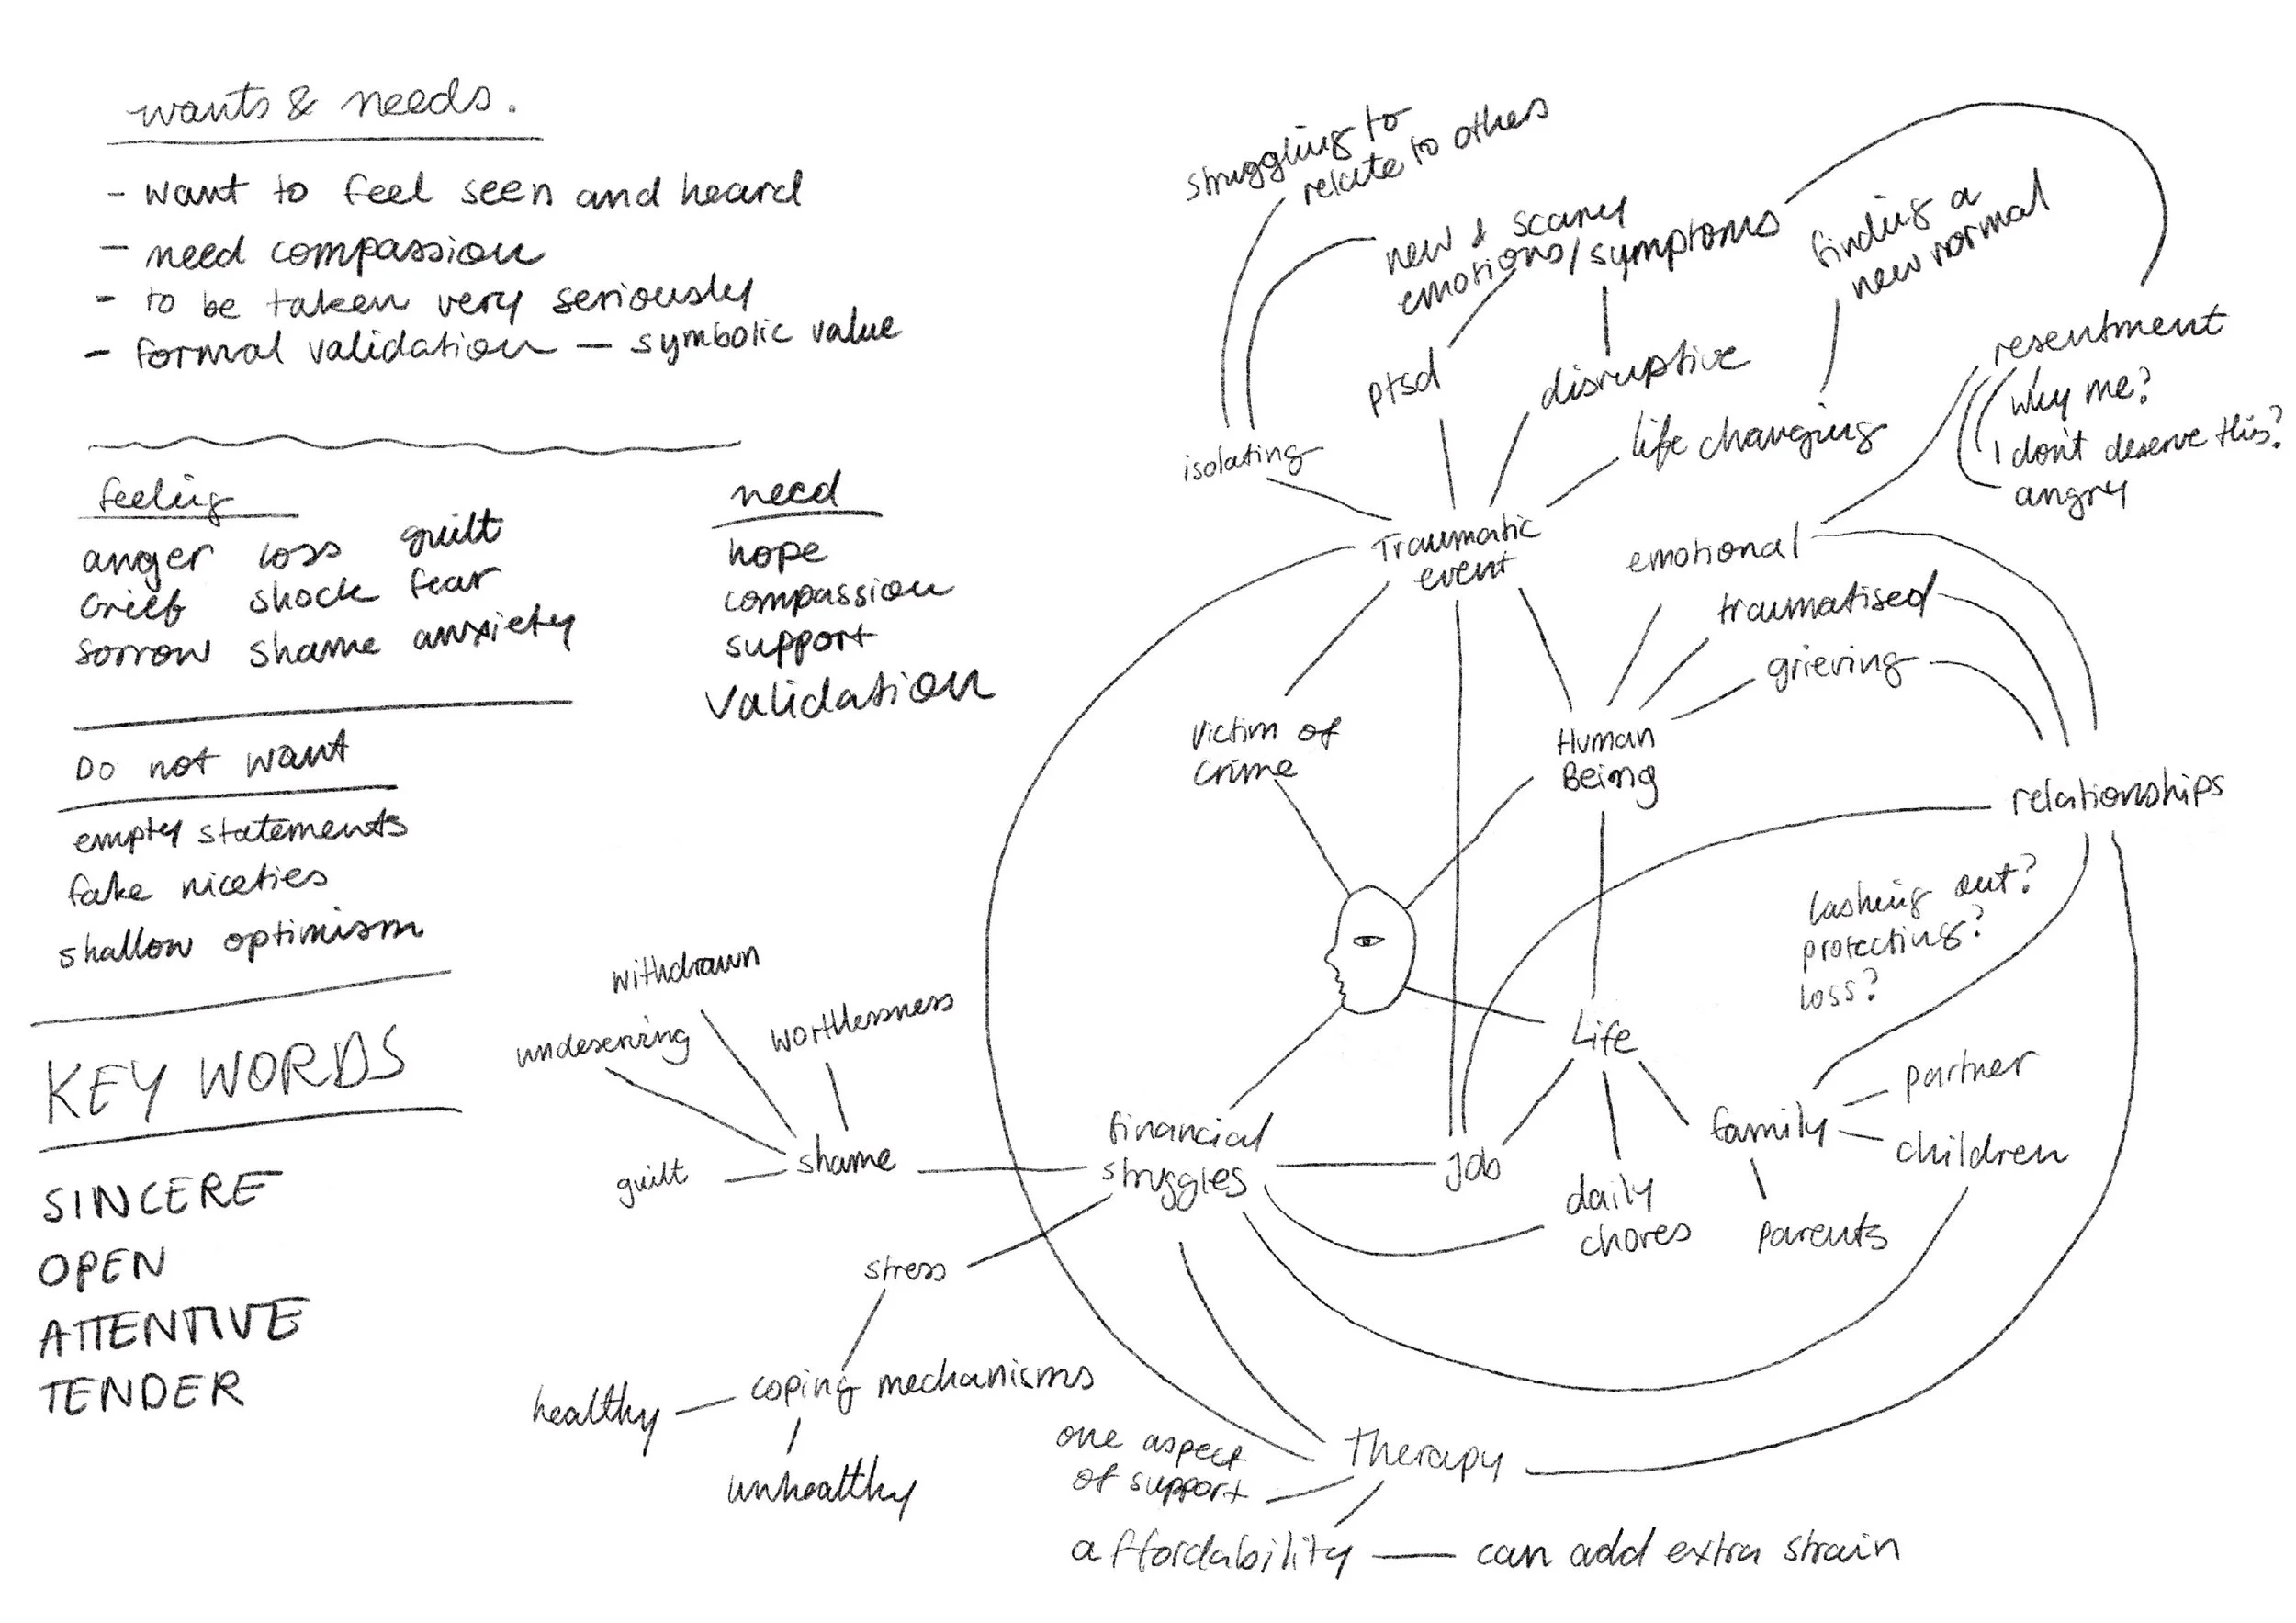 wants & needs.
- want to feel seen and heard
- need compassion
- to be taken very seriously
- formal validation - symbolic value
feeling
anger loss guilt
Grief shock fear
sorrow shame anxiety
need
hope
compassion
support
validation
Do not want
empty statements
fake niceties
shallow optimism
KEY WORDS
SINCERE
OPEN
ATTENTIVE
TENDER
struggling to
relate to others
new & scary
emotions/symptoms
finding a
new normal
ptsd
disruptive
life changing
isolating
resentment
why me?
I don't deserve this?
angry
Traumatic
event
emotional
traumatised
grieving
Victim of
Crime
Human
Being
relationships
lashing out?
protecting?
loss?
Life
withdrawn
undeserving
worthlessness
shame
guilt
financial
struggles
job
daily
chores
family
partner
children
parents
stress
coping mechanisms
healthy
unhealthy
Therapy
one aspect
of support
affordability - can add extra strain